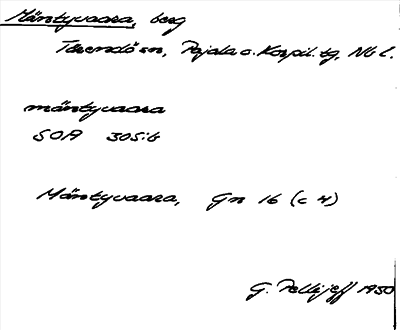 Mäntyvaara, berg
Tärendö sn, Pajala o. Korpil. tg, Nb l.
mäntyvaara
SOA 305:6
Mäntyvaara, Gn 16 (c 4)
G. Pellijeff 1950